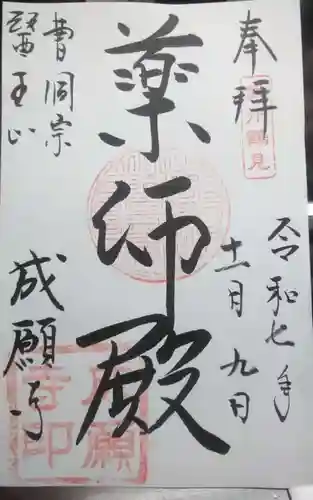 奉拝
令和七年
十一月九日
薬師殿
曹洞宗
醫王山
成願寺
鶴見
成願
寺印